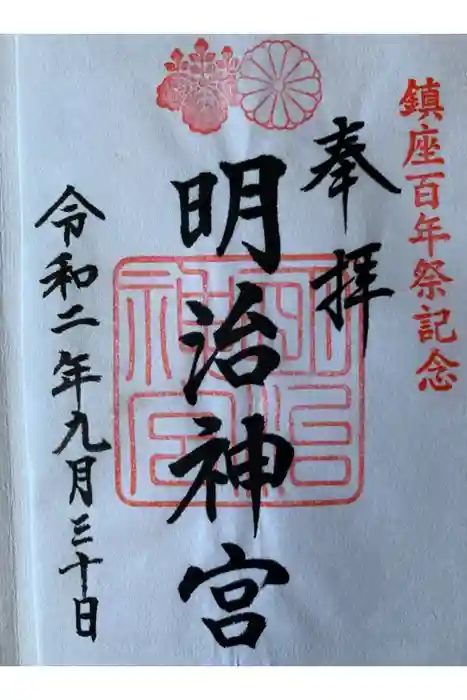 鎮座百年祭記念
奉拝
明治神宮
令和二年九月三十日
明治神宮